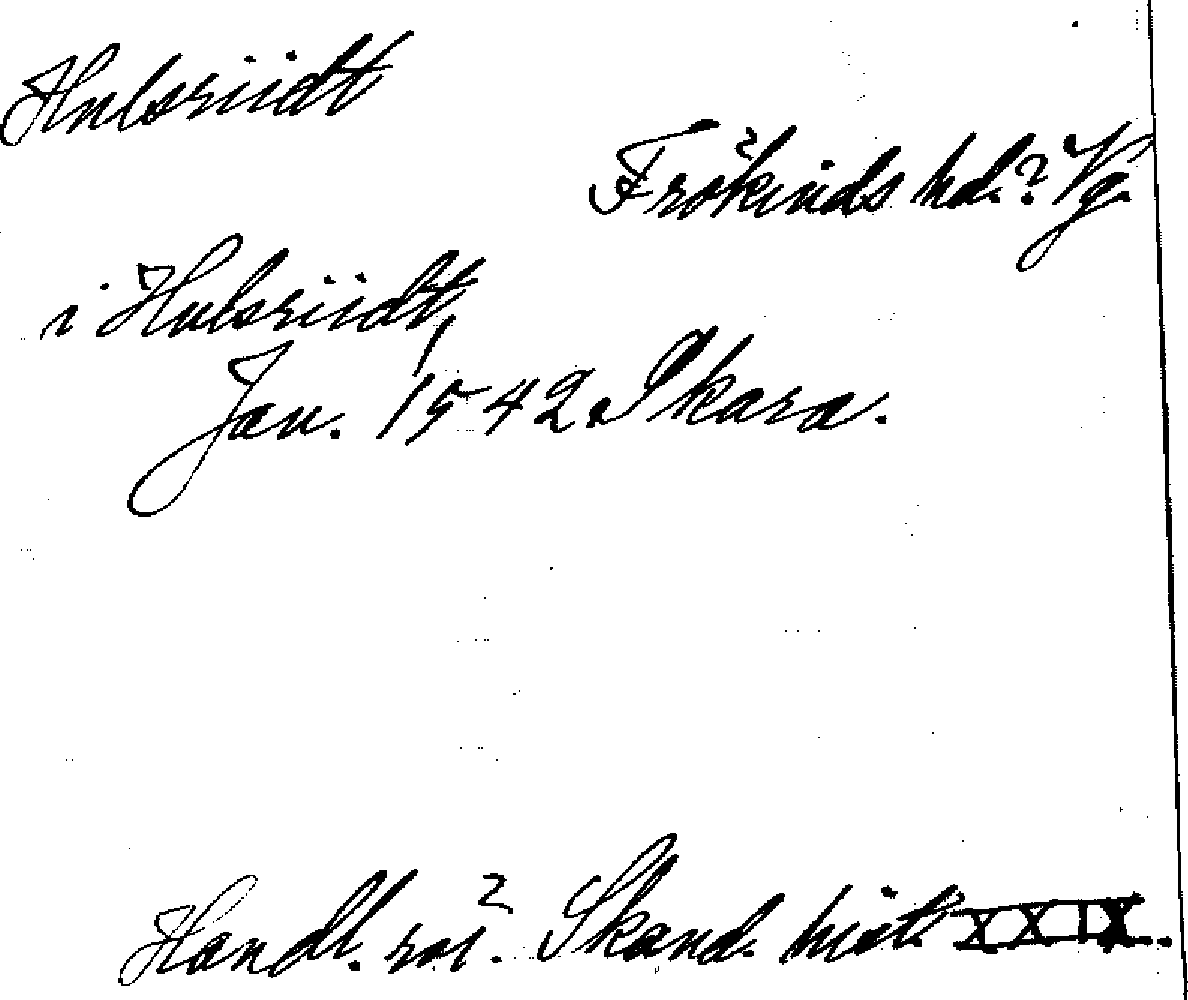 Hulsriidt
Frökinds hd.? Vg.
i Hulsriidt,
Jan. 1542. Skara.
Handl. rör. Skand. hist. XXIX.